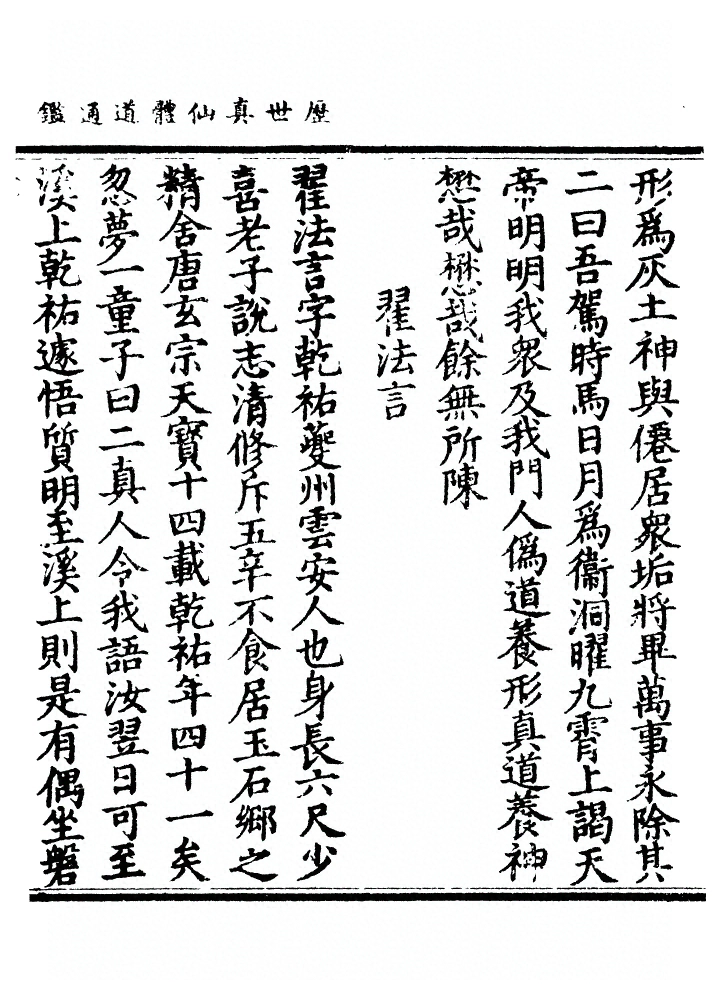 歷世真仙體道通鑑
形爲灰土神與僊居衆垢將畢萬事永除其
二曰吾駕時馬日月爲衞洞曜九霄上謁天
帝明明我衆及我門人僞道養形真道養神
懋哉懋哉餘無所陳
翟法言
翟法言字乾祐夔州雲安人也身長六尺少
喜老子說志清修斥五辛不食居玉石鄉之
精舍唐玄宗天寶十四載乾祐年四十一矣
忽夢一童子曰二真人令我語汝翌日可至
溪上乾祐遽悟質明至溪上則是有偶坐磐